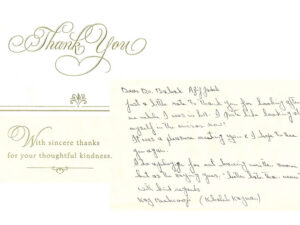 Thank You
With sincere thanks
for your thoughtful kindness.
Dear Dr. Babak
Just a little note to thank you for looking after
me while I was in hol. I quite like looking at
myself in the mirror now!
It was a pleasure meeting you & I hope to see
you again.
I do apologize for not having written sooner
but as the saying goes, - better late than never!
With kind regards
Kay